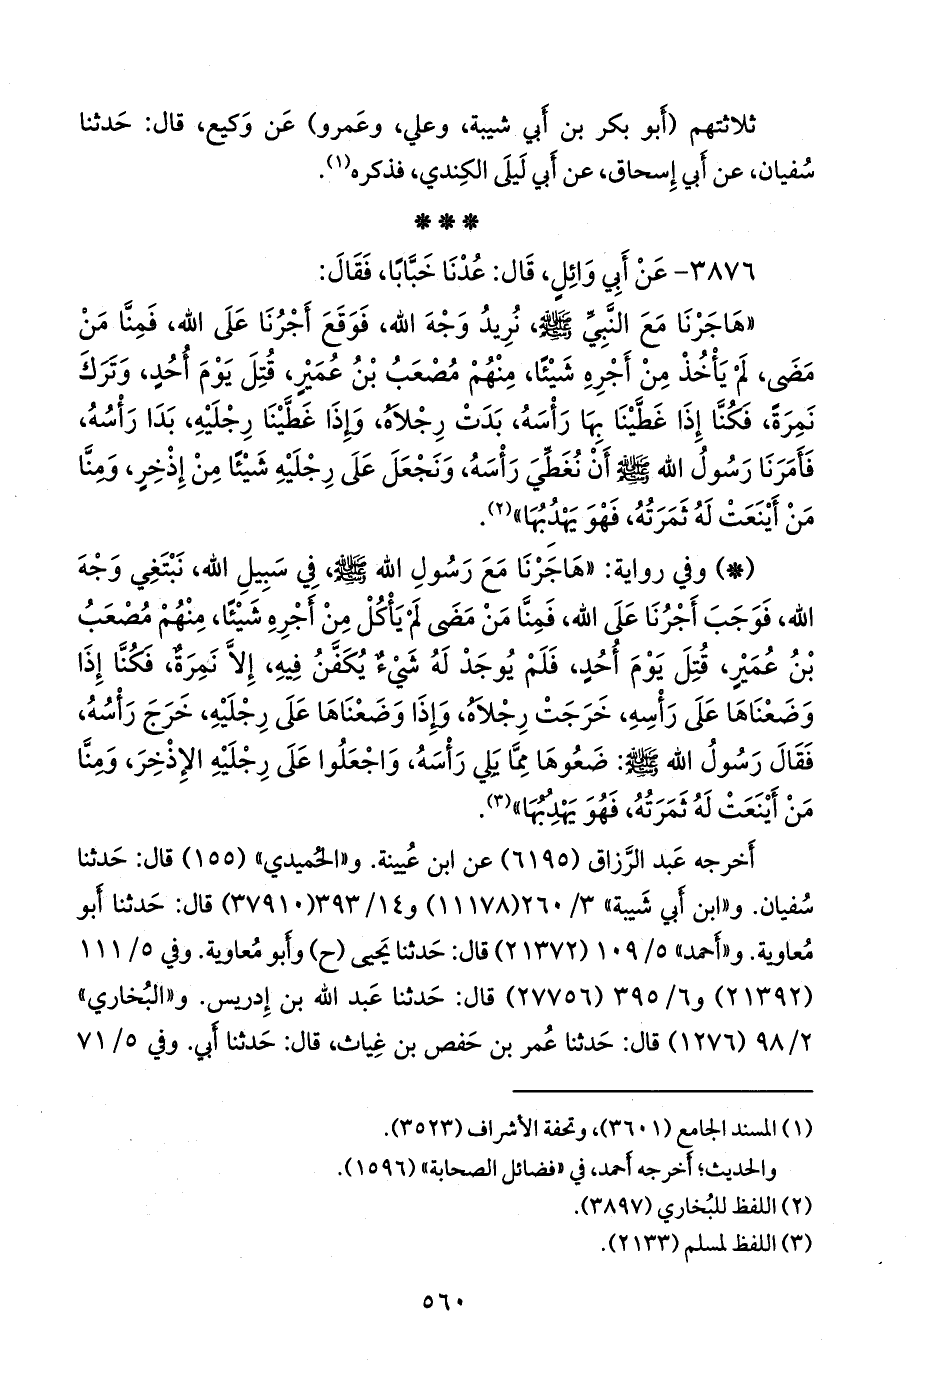 ثلاثتهم (أَبو بكر بن أَبي شيبة، وعلي، وعَمرو) عَن وَكيع، قال: حَدثنا
سُفيان، عن أَبي إِسحاق، عن أَبي لَيلَى الكِندي، فذكره(١).
* * *
٣٨٧٦- عَنْ أَبِي وَائِلٍ، قَالَ: عُدْنَا خَبَّابًا، فَقَالَ:
«هَاجَرْنَا مَعَ النَّبِيِّ ﷺ، نُرِيدُ وَجْهَ الله، فَوَقَعَ أَجْرُنَا عَلَى الله، فَمِنَّا مَنْ
مَضَى، لَمْ يَأْخُذْ مِنْ أَجْرِهِ شَيْئًا، مِنْهُمْ مُصْعَبُ بْنُ عُمَيْرٍ، قُتِلَ يَوْمَ أُحُدٍ، وَتَرَكَ
نَمِرَةً، فَكُنَّا إِذَا غَطَّيْنَا بِهَا رَأْسَهُ، بَدَتْ رِجْلاَهُ، وَإِذَا غَطَّيْنَا رِجْلَيْهِ، بَدَا رَأْسُهُ،
فَأَمَرَنَا رَسُولُ الله ﷺ أَنْ نُغَطِّيَ رَأْسَهُ، وَنَجْعَلَ عَلَى رِجْلَيْهِ شَيْئًا مِنْ إِذْخِرٍ، وَمِنَّا
مَنْ أَيْنَعَتْ لَهُ ثَمَرَتُهُ، فَهْوَ يَهْدِبُهَا»(٢).
(*) وفي رواية: «هَاجَرْنَا مَعَ رَسُولِ الله ﷺ، فِي سَبِيلِ الله، نَبْتَغِي وَجْهَ
الله، فَوَجَبَ أَجْرُنَا عَلَى الله، فَمِنَّا مَنْ مَضَى لَمْ يَأْكُلْ مِنْ أَجْرِهِ شَيْئًا، مِنْهُمْ مُصْعَبُ
بْنُ عُمَيْرٍ، قُتِلَ يَوْمَ أُحُدٍ، فَلَمْ يُوجَدْ لَهُ شَيْءٌ يُكَفَّنُ فِيهِ، إِلاَّ نَمِرَةٌ، فَكُنَّا إِذَا
وَضَعْنَاهَا عَلَى رَأْسِهِ، خَرَجَتْ رِجْلاَهُ، وَإِذَا وَضَعْنَاهَا عَلَى رِجْلَيْهِ، خَرَجَ رَأْسُهُ،
فَقَالَ رَسُولُ الله ﷺ: ضَعُوهَا مِمَّا يَلِي رَأْسَهُ، وَاجْعَلُوا عَلَى رِجْلَيْهِ الإِذْخِرَ، وَمِنَّا
مَنْ أَيْنَعَتْ لَهُ ثَمَرَتُهُ، فَهُوَ يَهْدِبُهَا»(٣).
أَخرجه عَبد الرَّزاق (٦١٩٥) عن ابن عُيينة. و«الحُميدي» (١٥٥) قال: حَدثنا
سُفيان. و«ابن أَبي شَيبة» ٣/ ٢٦٠(١١١٧٨) و١٤/ ٣٩٣(٣٧٩١٠) قال: حَدثنا أَبو
مُعاوية. و«أَحمد» ٥/ ١٠٩ (٢١٣٧٢) قال: حَدثنا يَحيى (ح) وأَبو مُعاوية. وفي ٥/ ١١١
(٢١٣٩٢) و٦/ ٣٩٥ (٢٧٧٥٦) قال: حَدثنا عَبد الله بن إِدريس. و«البُخاري»
٢/ ٩٨ (١٢٧٦) قال: حَدثنا عُمر بن حَفص بن غِياث، قال: حَدثنا أَبي. وفي ٥/ ٧١
(١) المسند الجامع (٣٦٠١)، وتحفة الأشراف (٣٥٢٣).
والحديث؛ أَخرجه أَحمد، في «فضائل الصحابة» (١٥٩٦).
(٢) اللفظ للبُخاري (٣٨٩٧).
(٣) اللفظ لمسلم (٢١٣٣).
٥٦٠